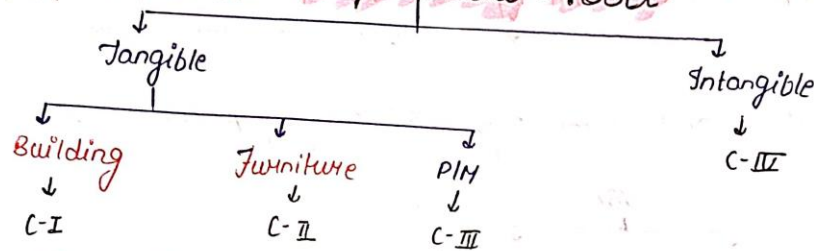 Tangible Intangible
Building Furniture P/M C-IV
C-I C-II C-III